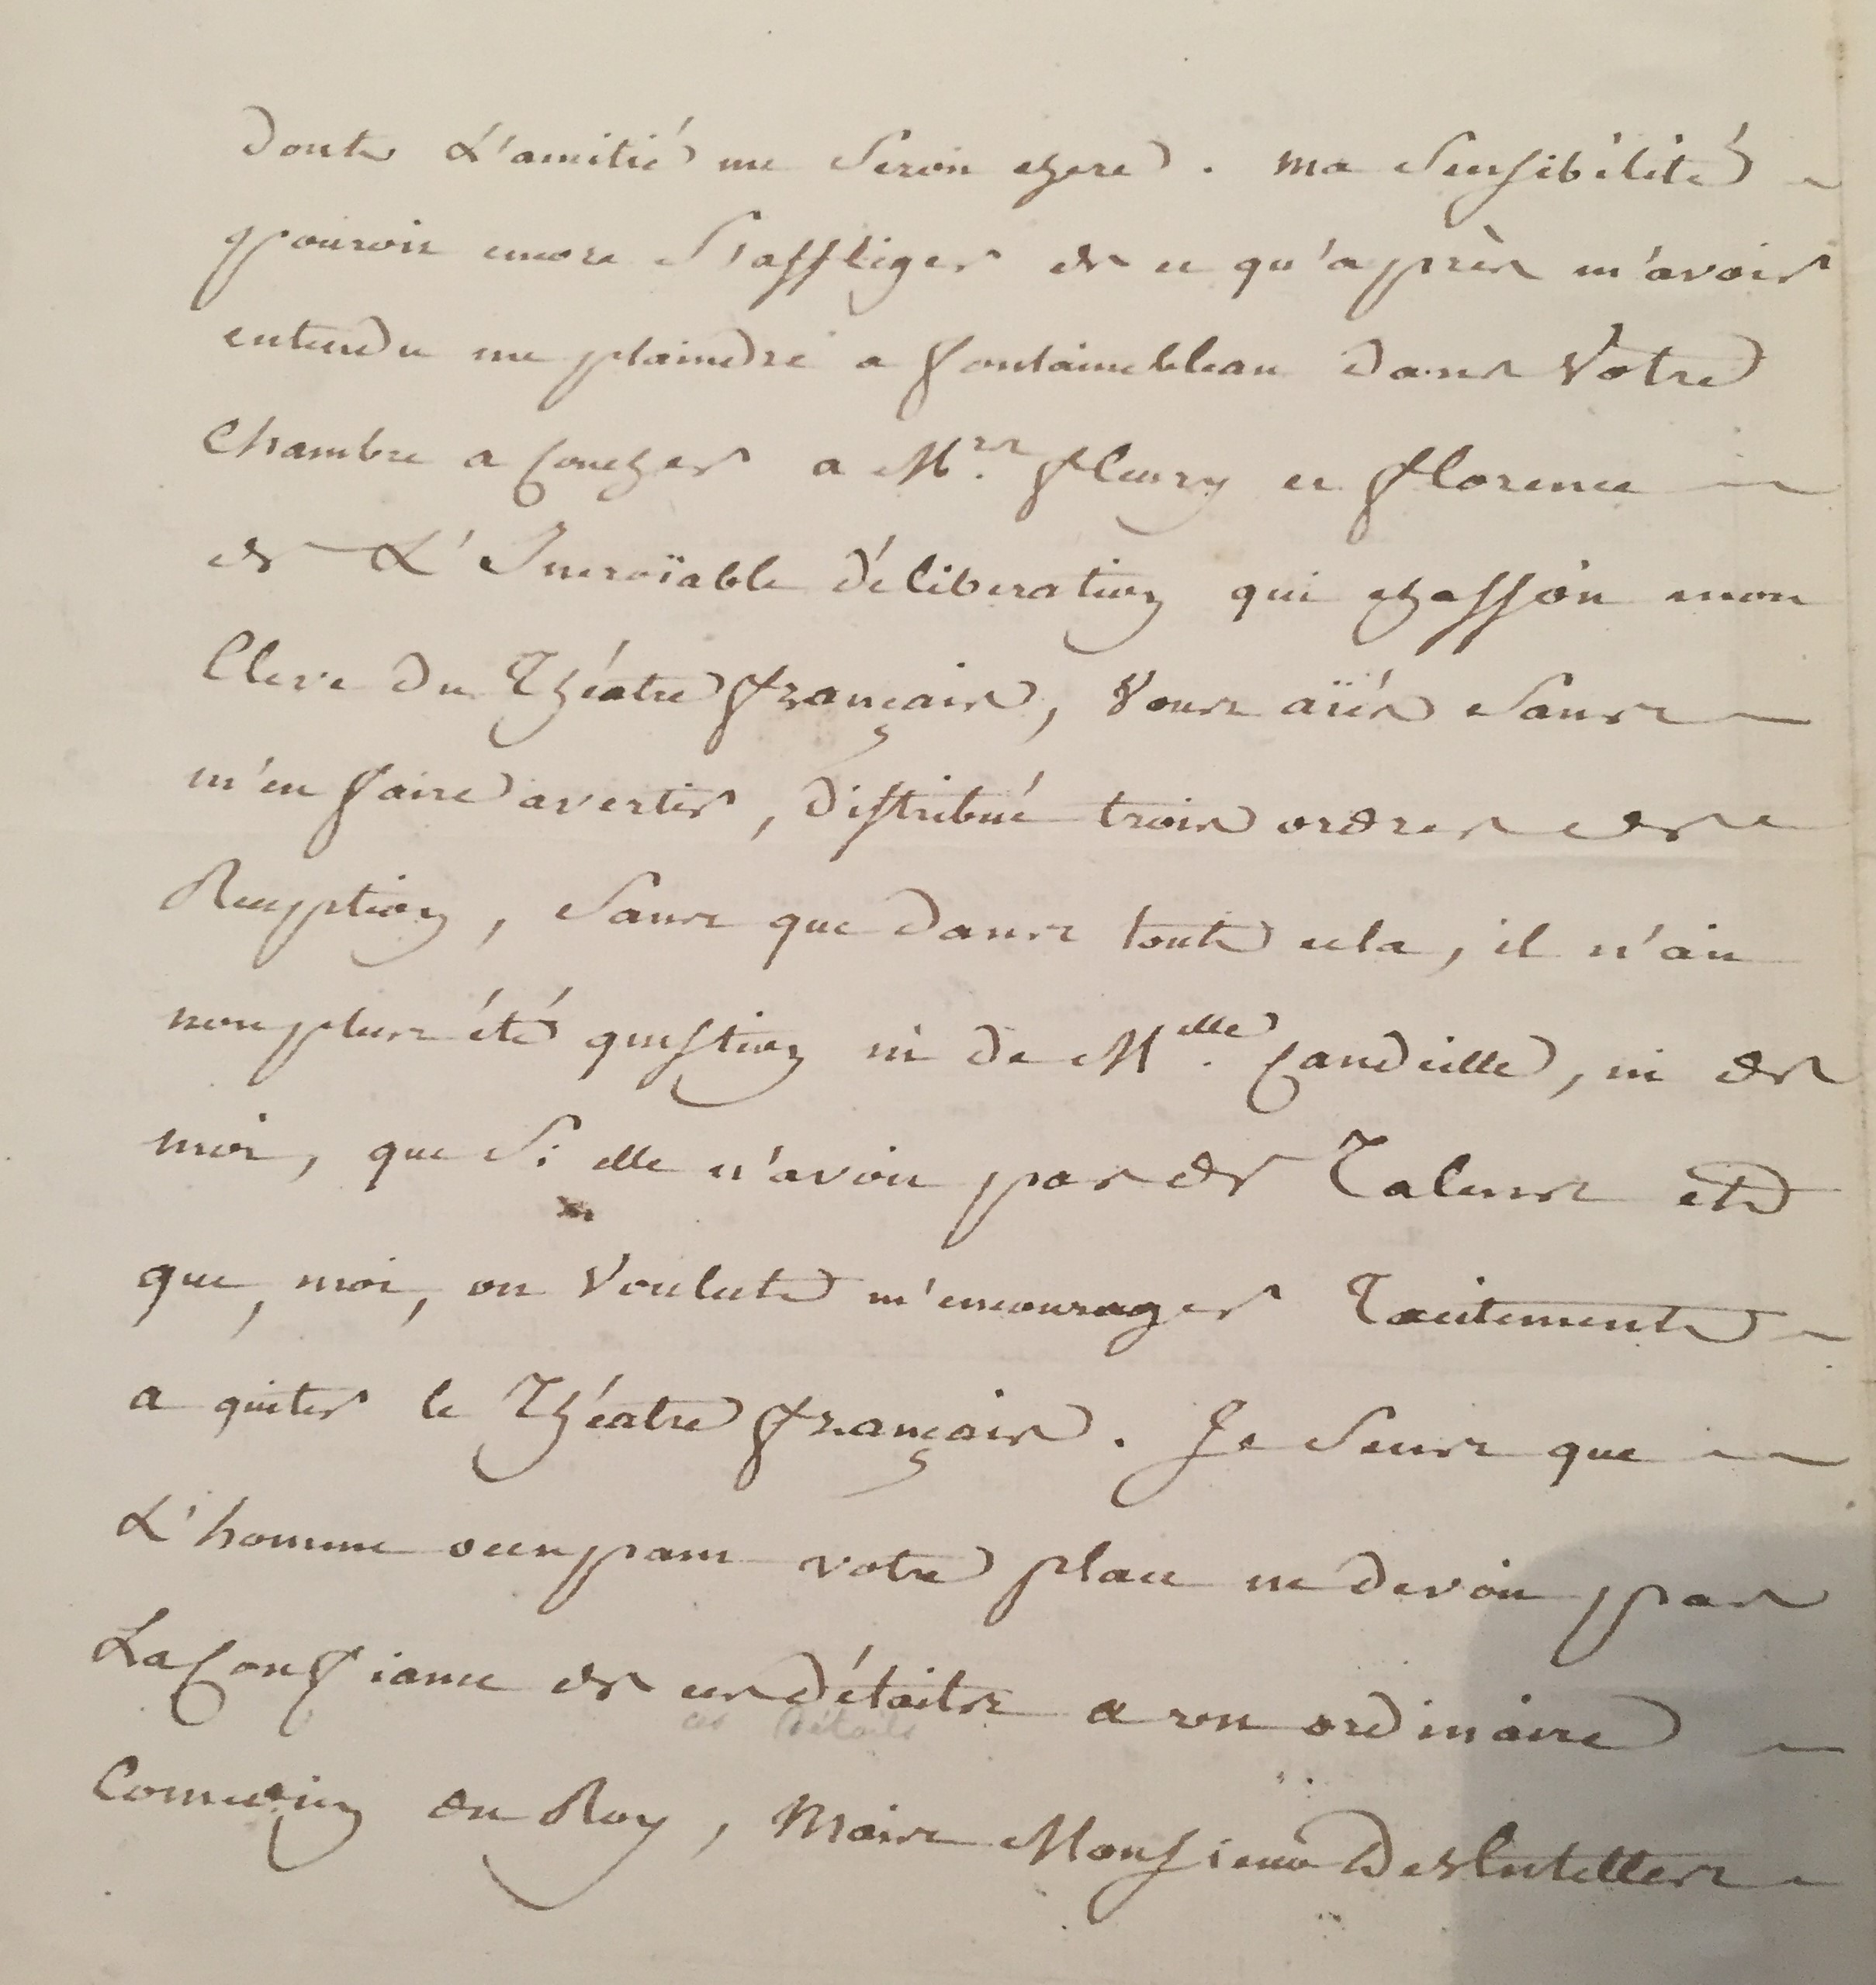 dont L'amitié me Seroit chere. ma Sensibilité
pouroit encore S'affliger de ce qu'après m'avoir
entendu me plaindre a fontainebleau dans Votre
Chambre a Coucher a M.rs fleury et florence
de L'Incroïable déliberation qui chassoit mon
Eleve du Théatre français, Vous aïés Sans
m'en faire avertir, distribué trois ordres de
Reception, Sans que dans tout cela, il n'ait
non plus été question ni de M.elle Candeille, ni de
moi, que Si elle n'avoit pas de Talens et
que, moi, on Voulut m'encourager Tacitement
a quiter le Théatre français. Je Sens que
L'homme occupant votre place ne devoit pas
La Confiance de ces détails a un ordinaire
ces détails
Comedien du Roy, Mais Monsieur Desentelles